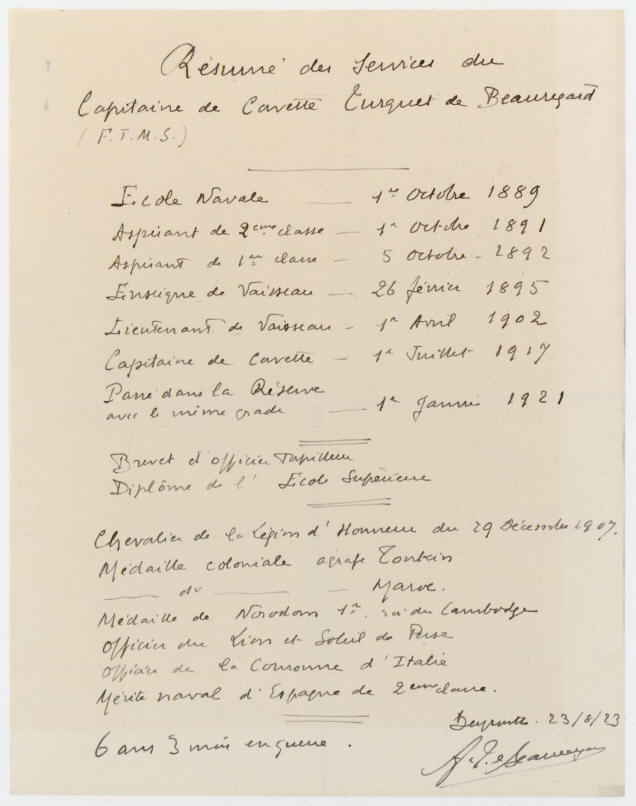 Résumé des Services du
Capitaine de Corvette Turquet de Beauregard
(F.T.M.S.)
Ecole Navale — 1er Octobre 1889
Aspirant de 2eme classe — 1er Octobre 1891
Aspirant de 1ere classe — 5 Octobre - 1892
Enseigne de Vaisseau — 26 février 1895
Lieutenant de Vaisseau — 1er Avril 1902
Capitaine de Corvette — 1er Juillet 1917
Passé dans la Réserve
avec le même grade — 1er Janvier 1921
Brevet d'officier Torpilleur
Diplôme de l' Ecole Supérieure
Chevalier de la Légion d'Honneur du 29 Décembre 1907.
Médaille coloniale agrafe Tonkin
— do — — Maroc.
Médaille de Norodom 1er roi du Cambodge
Officier du Lion et Soleil de Perse
Officier de la Couronne d'Italie
Mérite naval d'Espagne de 2eme classe.
Beyrouth. 23/8/23
6 ans 3 mois en guerre.
de Beauregard